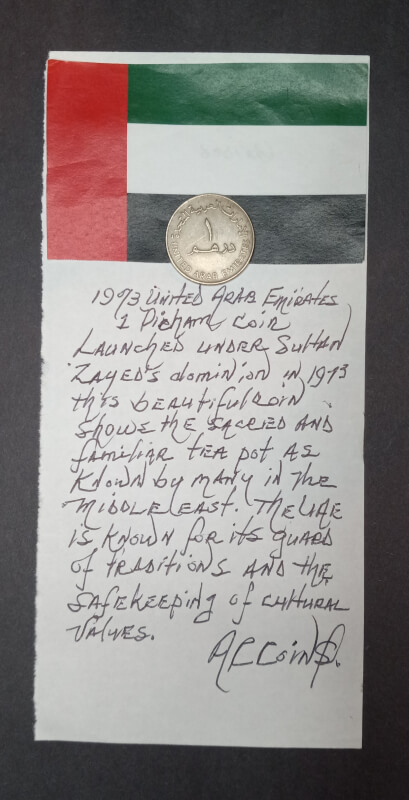 الإمارات العربية المتحدة
١
درهم
UNITED ARAB EMIRATES
1973 UNITED ARAB EMIRATES
1 Dirham Coin
LAUNCHED UNDER SULTAN
ZAYED'S dominion in 1973
this beautiful coin
shows the sacred and
familiar tea pot as
known by many in the
MIDDLE EAST. The UAE
is known for its guard
of traditions and the
safekeeping of cultural
values.
ALCoin$.